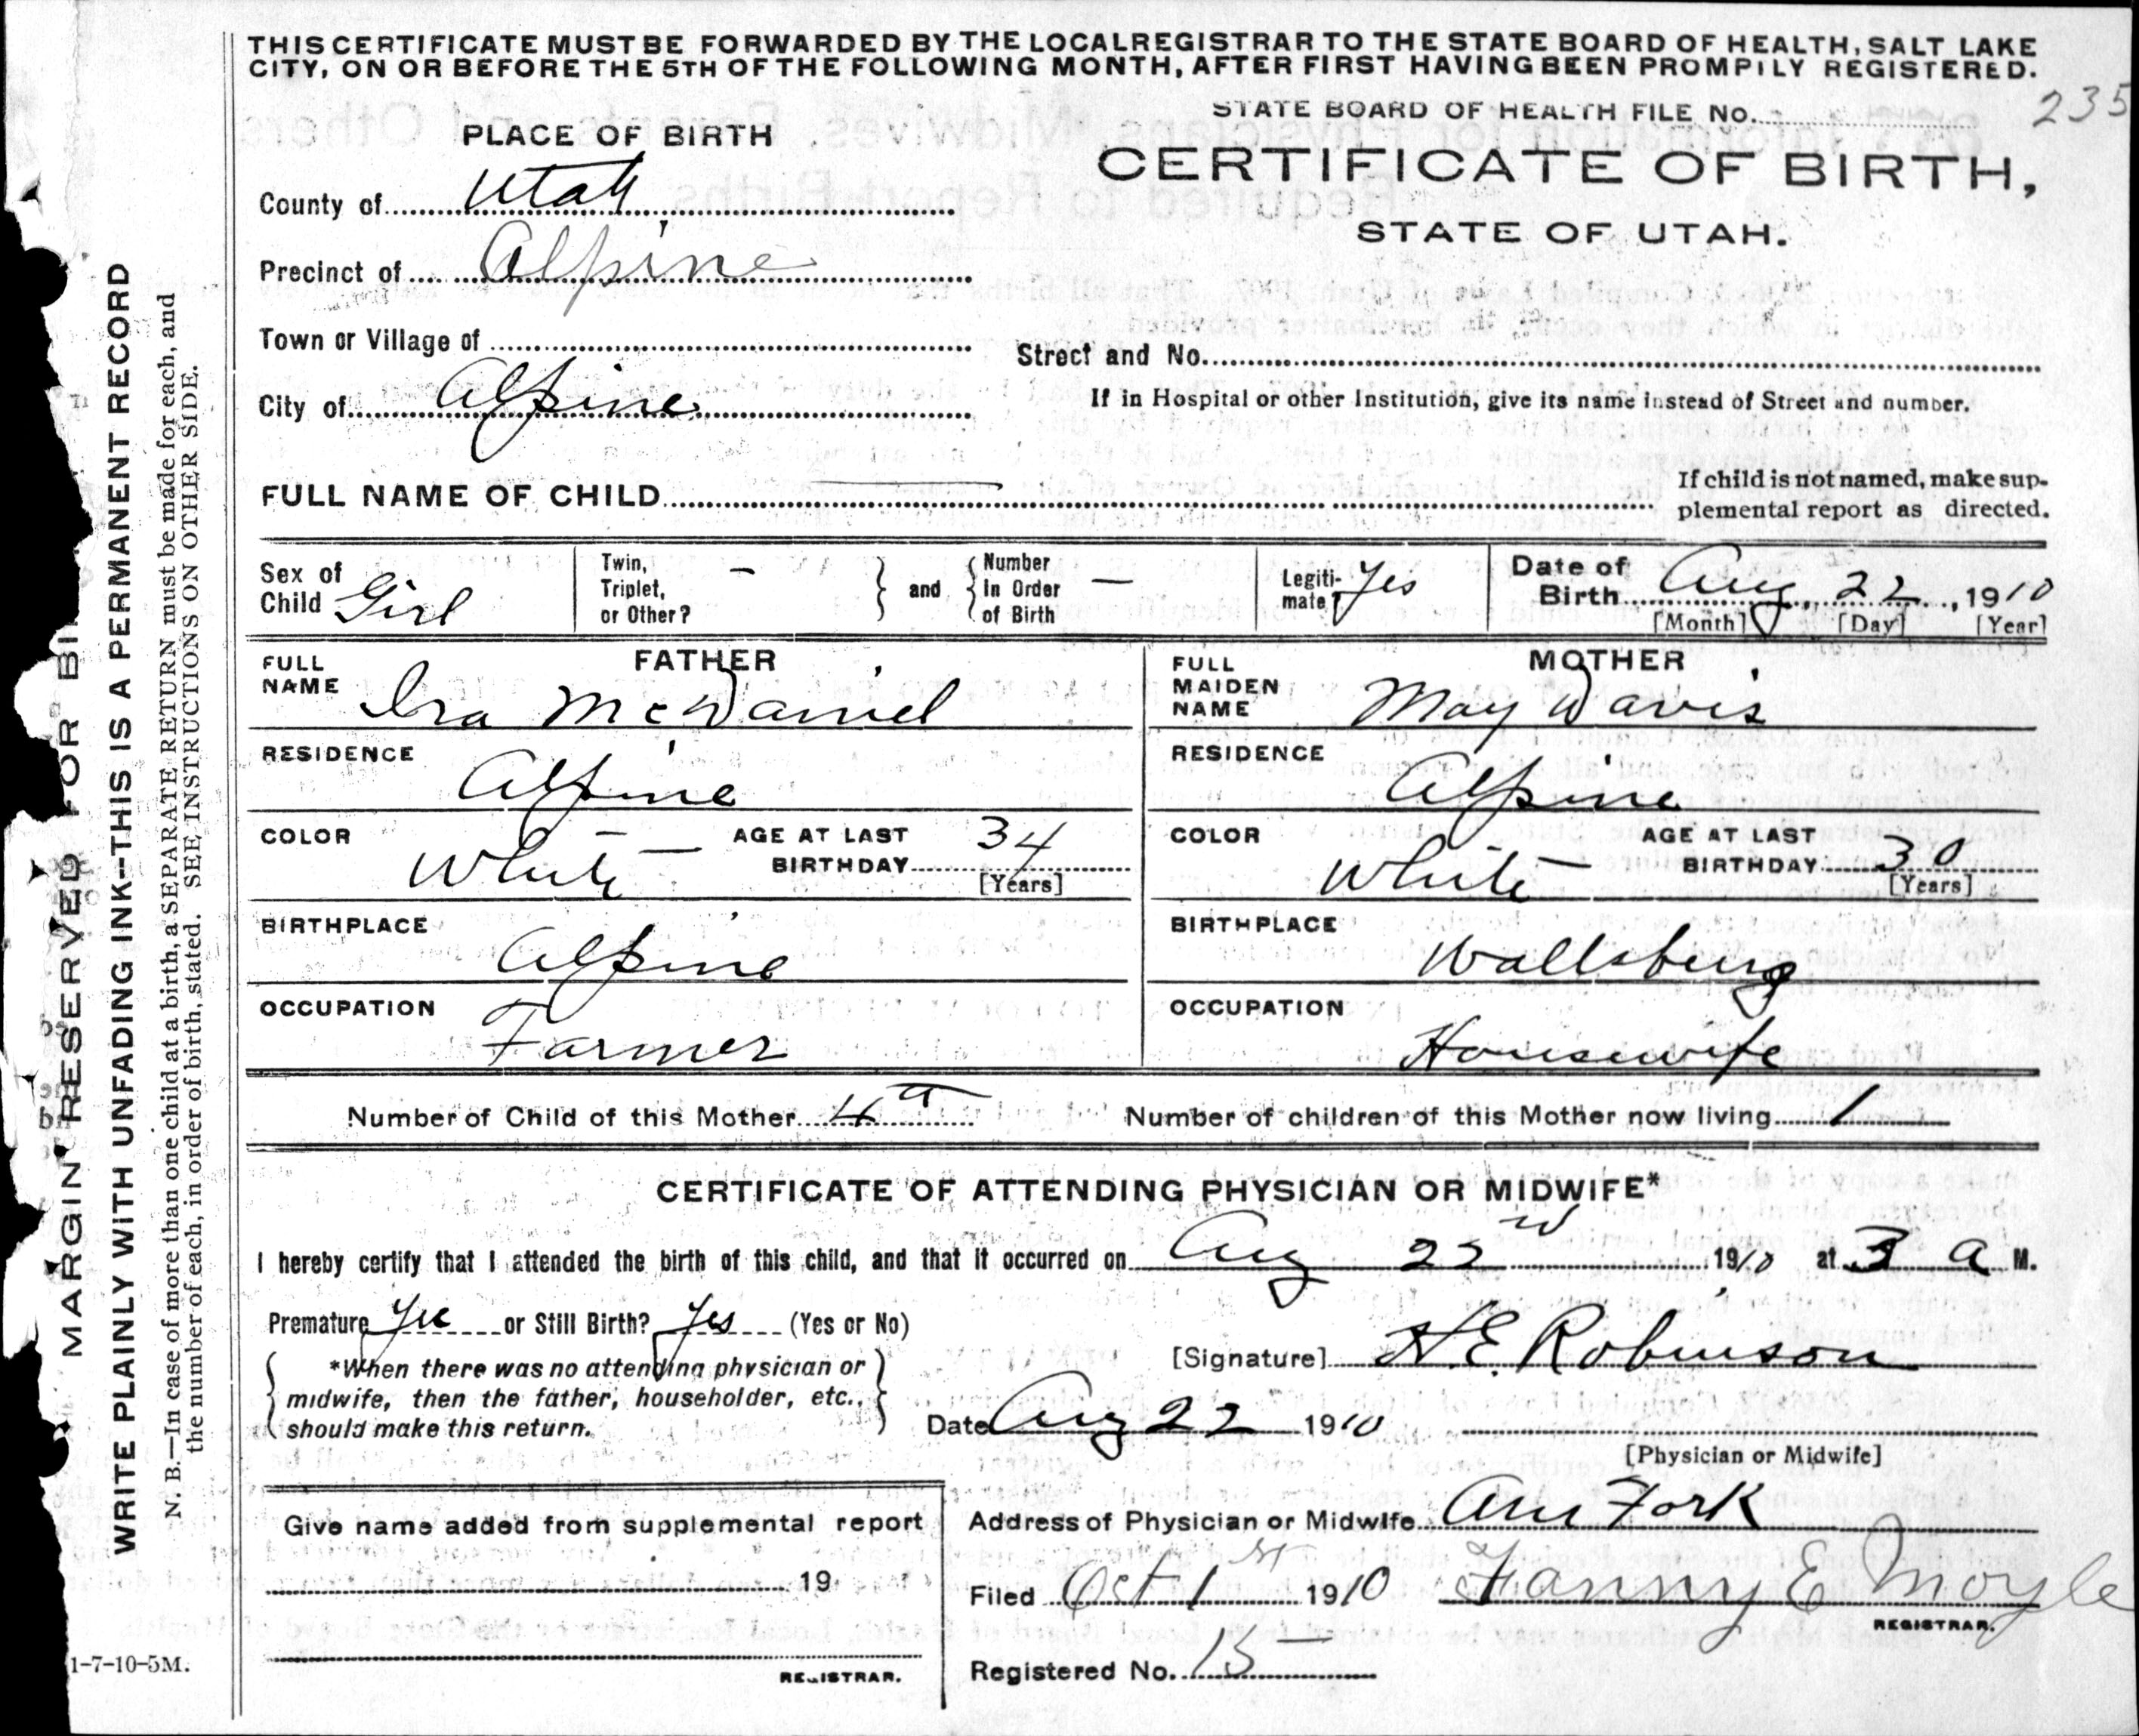 THIS CERTIFICATE MUST BE FORWARDED BY THE LOCAL REGISTRAR TO THE STATE BOARD OF HEALTH, SALT LAKE
CITY, ON OR BEFORE THE 5TH OF THE FOLLOWING MONTH, AFTER FIRST HAVING BEEN PROMPILY REGISTERED.
STATE BOARD OF HEALTH FILE No. 235
PLACE OF BIRTH
CERTIFICATE OF BIRTH,
STATE OF UTAH.
County of Utah
Precinct of Alpine
Town or Village of
Street and No.
City of Alpine
If in Hospital or other Institution, give its name instead of Street and number.
FULL NAME OF CHILD
If child is not named, make sup-
plemental report as directed.
Sex of Child Girl
Twin, Triplet, or Other? –
and
Number In Order of Birth –
Legiti-mate? Yes
Date of Birth Aug. 22, 1910
[Month] [Day] [Year]
FATHER
FULL NAME Ira McDaniel
RESIDENCE Alpine
COLOR White
AGE AT LAST BIRTHDAY 34 [Years]
BIRTHPLACE Alpine
OCCUPATION Farmer
MOTHER
FULL MAIDEN NAME May Davis
RESIDENCE Alpine
COLOR White
AGE AT LAST BIRTHDAY 30 [Years]
BIRTHPLACE Wallsburg
OCCUPATION Housewife
Number of Child of this Mother 4th
Number of children of this Mother now living 1
CERTIFICATE OF ATTENDING PHYSICIAN OR MIDWIFE*
I hereby certify that I attended the birth of this child, and that it occurred on Aug 22nd 1910 at 3 a M.
Premature Yes or Still Birth? Yes (Yes or No)
*When there was no attending physician or
midwife, then the father, householder, etc.,
should make this return.
[Signature] H.E. Robinson
Date Aug 22 1910
[Physician or Midwife]
Give name added from supplemental report
19
REGISTRAR.
Address of Physician or Midwife Am Fork
Filed Oct 1st 1910 Fanny E Moyle
REGISTRAR.
Registered No. 15
MARGIN RESERVED FOR
WRITE PLAINLY WITH UNFADING INK--THIS IS A PERMANENT RECORD
N. B.—In case of more than one child at a birth, a SEPARATE RETURN must be made for each, and
the number of each, in order of birth, stated. SEE INSTRUCTIONS ON OTHER SIDE.
1-7-10-5M.